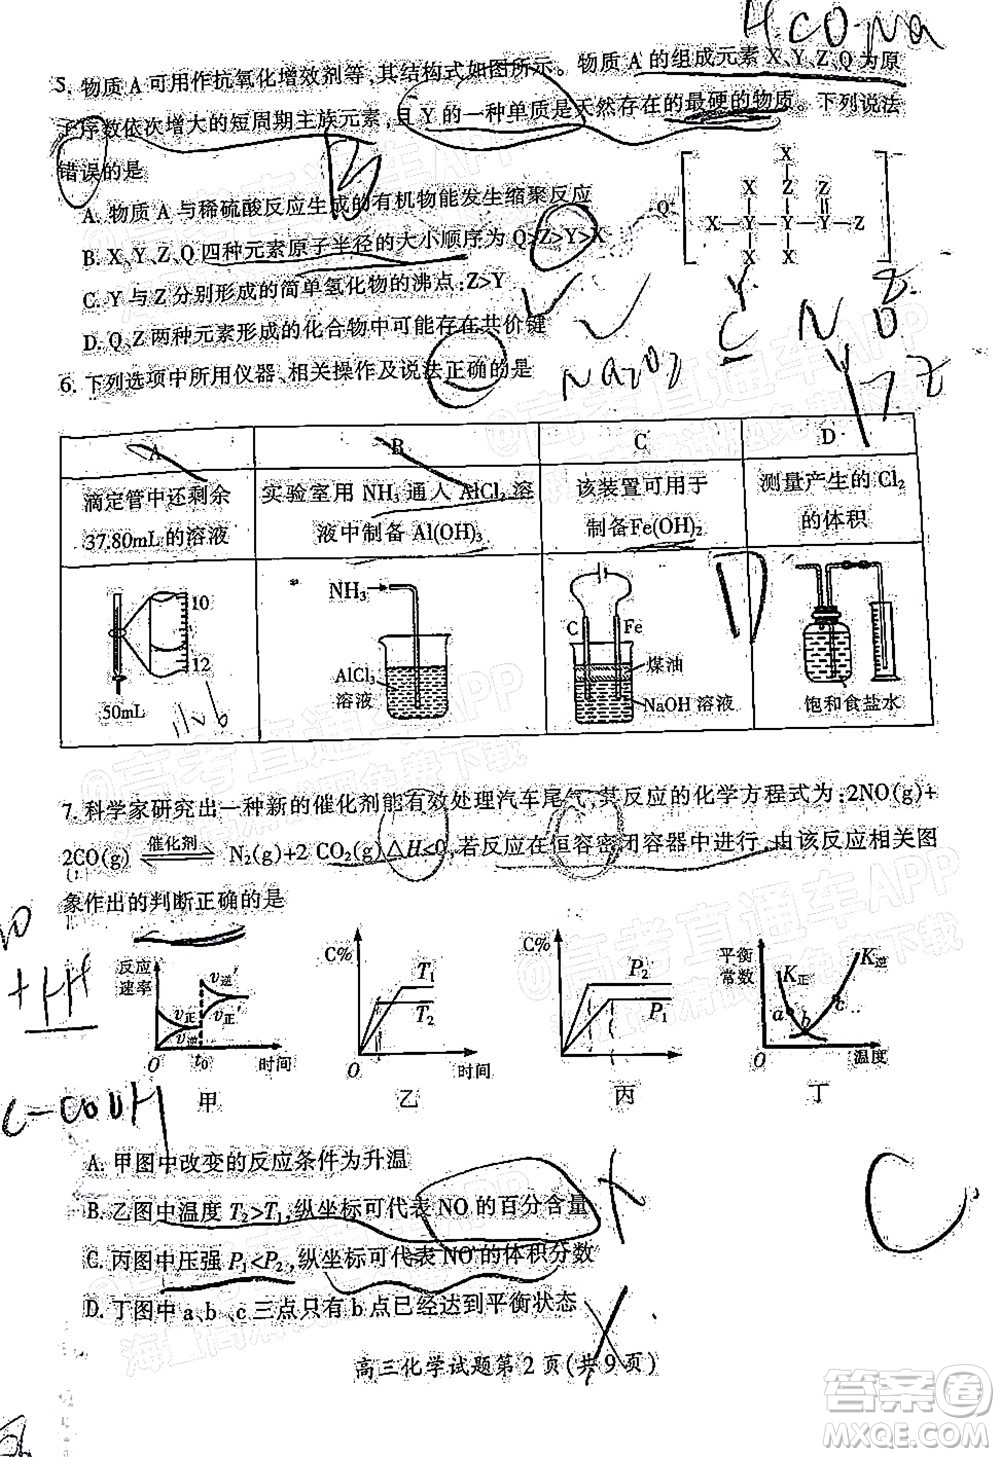 HCO Na
5. 物质A可用作抗氧化增效剂等,其结构式如图所示。物质A的组成元素X、Y、Z、Q为原
子序数依次增大的短周期主族元素,且Y的一种单质是天然存在的最硬的物质。下列说法
错误的是
A. 物质A与稀硫酸反应生成的有机物能发生缩聚反应
B. X、Y、Z、Q四种元素原子半径的大小顺序为Q>Z>Y>X
C. Y与Z分别形成的简单氢化物的沸点:Z>Y
D. Q、Z两种元素形成的化合物中可能存在共价键
Q⁺
X
X Z Z
X—Y—Y—Y—Z
X X
Y Z
C N O
Na₂O₂
Y Z
6. 下列选项中所用仪器、相关操作及说法正确的是
A B C D
滴定管中还剩余
37.80mL的溶液
实验室用NH₃通入AlCl₃溶
液中制备Al(OH)₃
该装置可用于
制备Fe(OH)₂
测量产生的Cl₂
的体积
10
12
50mL
NH₃
AlCl₃
溶液
C Fe
煤油
NaOH溶液
饱和食盐水
D
7. 科学家研究出一种新的催化剂能有效处理汽车尾气,其反应的化学方程式为:2NO(g)+
2CO(g) 催化剂 ⇌ N₂(g)+2 CO₂(g) △H<0,若反应在恒容密闭容器中进行,由该反应相关图
象作出的判断正确的是
反应
速率
v正
v逆
v逆′
v正′
O t₀ 时间
甲
C%
T₁
T₂
O 时间
乙
C%
P₂
P₁
O 时间
丙
平衡
常数
K正
K逆
a b c
O 温度
丁
C-COOH
A. 甲图中改变的反应条件为升温
B. 乙图中温度T₂>T₁,纵坐标可代表NO的百分含量
C. 丙图中压强P₁<P₂,纵坐标可代表NO的体积分数
D. 丁图中a、b、c三点只有b点已经达到平衡状态
C
高三化学试题第2页(共9页)
答案圈
MXQE.COM